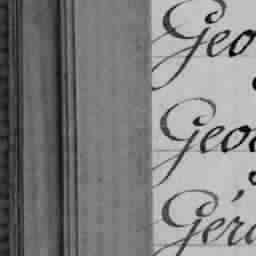 Geo
Geo
Gér